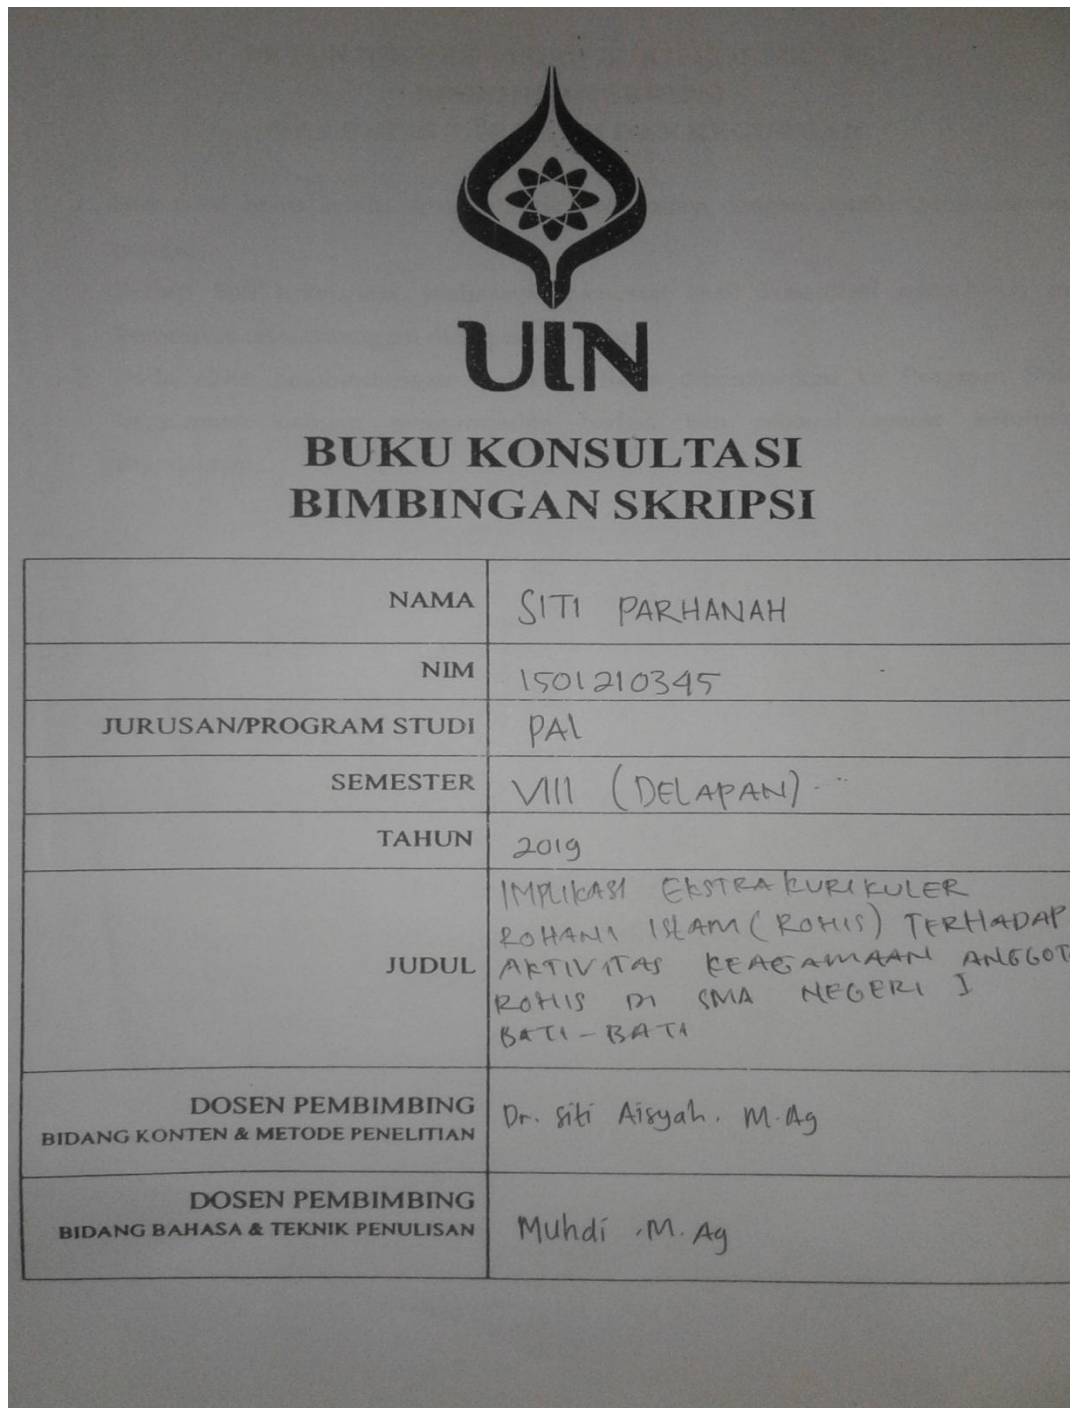 UIN
BUKU KONSULTASI
BIMBINGAN SKRIPSI
NAMA SITI PARHANAH
NIM 1501210345
JURUSAN/PROGRAM STUDI PAI
SEMESTER VIII (DELAPAN)
TAHUN 2019
JUDUL IMPLIKASI EKSTRAKURIKULER
ROHANI ISLAM (ROHIS) TERHADAP
AKTIVITAS KEAGAMAAN ANGGOT
ROHIS DI SMA NEGERI I
BATI-BATI
DOSEN PEMBIMBING
BIDANG KONTEN & METODE PENELITIAN Dr. Siti Aisyah. M.Ag
DOSEN PEMBIMBING
BIDANG BAHASA & TEKNIK PENULISAN Muhdi .M.Ag